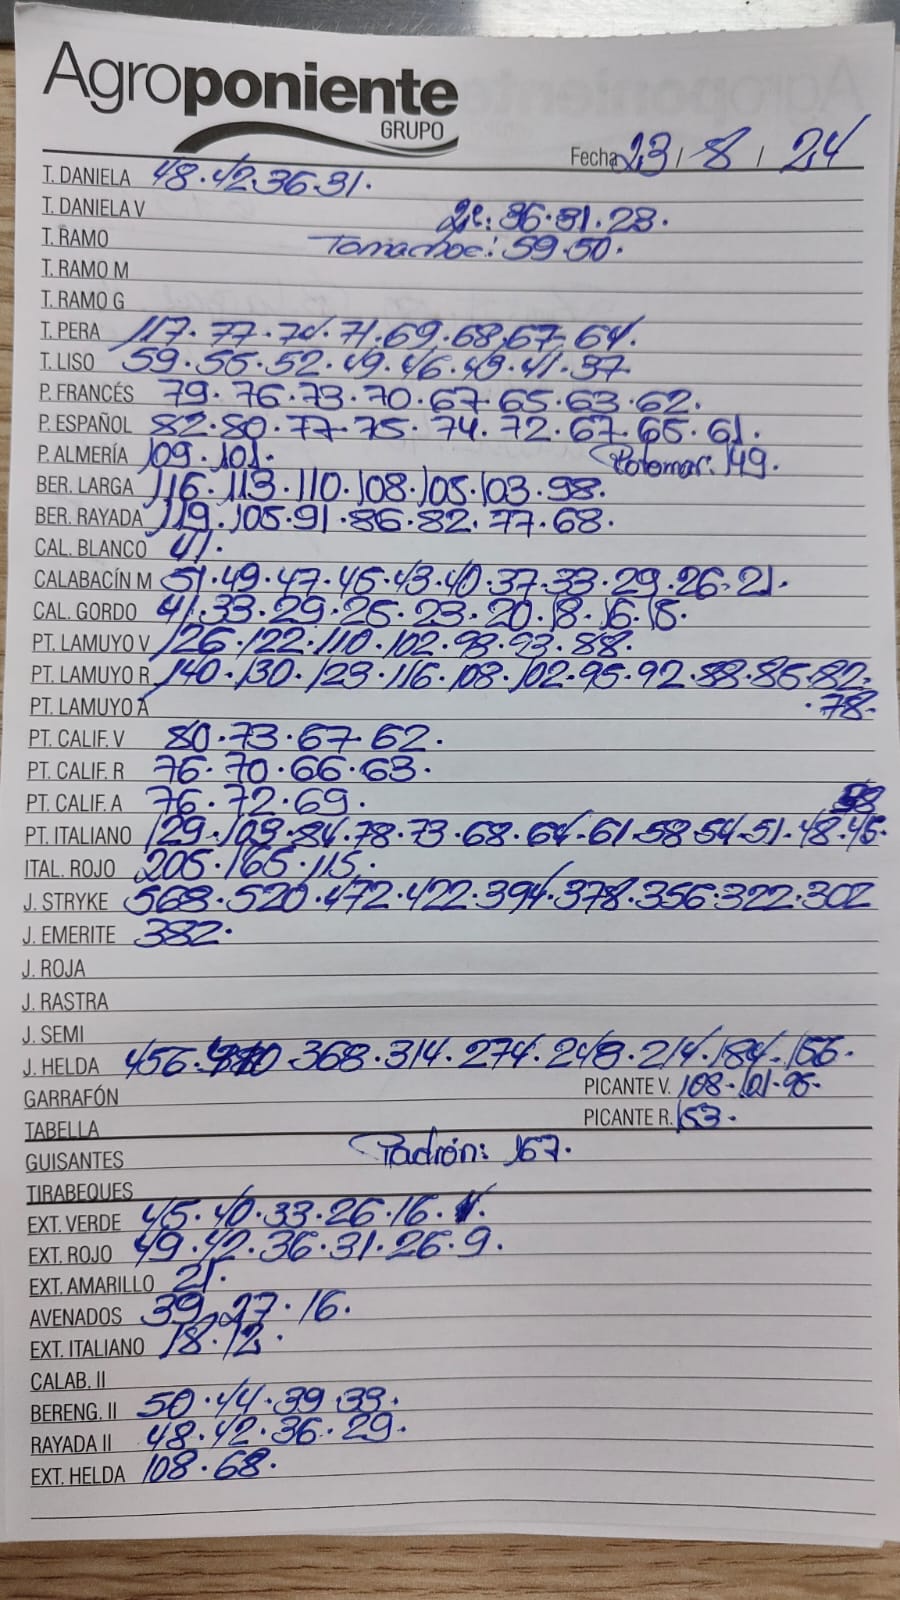 Agroponiente
GRUPO
Fecha 23 / 8 / 24
T. DANELA 48.42.36.31.
T. DANIELA V 2ª: 36.31.23.
T. RAMO Tomachoc: 59.50.
T. RAMO M
T. RAMO G
T. PERA 117.77.74.71.69.68.67.64.
T. LISO 59.55.52.49.46.43.41.37.
P. FRANCÉS 79.76.73.70.67.65.63.62.
P. ESPAÑOL 82.80.77.75.74.72.67.65.61.
P. ALMERÍA 109.101. Potomar: 149.
BER. LARGA 116.113.110.108.105.103.98.
BER. RAYADA 119.105.91.86.82.77.68.
CAL. BLANCO 41.
CALABACÍN M 51.49.47.45.43.40.37.33.29.26.21.
CAL. GORDO 41.33.29.25.23.20.18.16.15.
PT. LAMUYO V 126.122.110.102.98.93.88.
PT. LAMUYO R 140.130.123.116.108.102.95.92.88.85.82.
PT. LAMUYO A .78.
PT. CALIF. V 80.73.67.62.
PT. CALIF. R 76.70.66.63.
PT. CALIF. A 76.72.69.
PT. ITALIANO 129.109.84.78.73.68.64.61.58.54.51.48.45.
ITAL. ROJO 205.165.115.
J. STRYKE 568.520.472.422.394.378.356.322.302
J. EMERITE 382.
J. ROJA
J. RASTRA
J. SEMI
J. HELDA 456. 368.314.274.248.214.184.156.
GARRAFÓN PICANTE V. 108.101.95.
TABELLA PICANTE R. 153.
GUISANTES Padrón: 167.
TIRABEQUES
EXT. VERDE 45.40.33.26.16.
EXT. ROJO 49.42.36.31.26.9.
EXT. AMARILLO 21.
AVENADOS 39.27.16.
EXT. ITALIANO 18.12.
CALAB. II
BERENG. II 50.44.39.33.
RAYADA II 48.42.36.29.
EXT. HELDA 108.68.